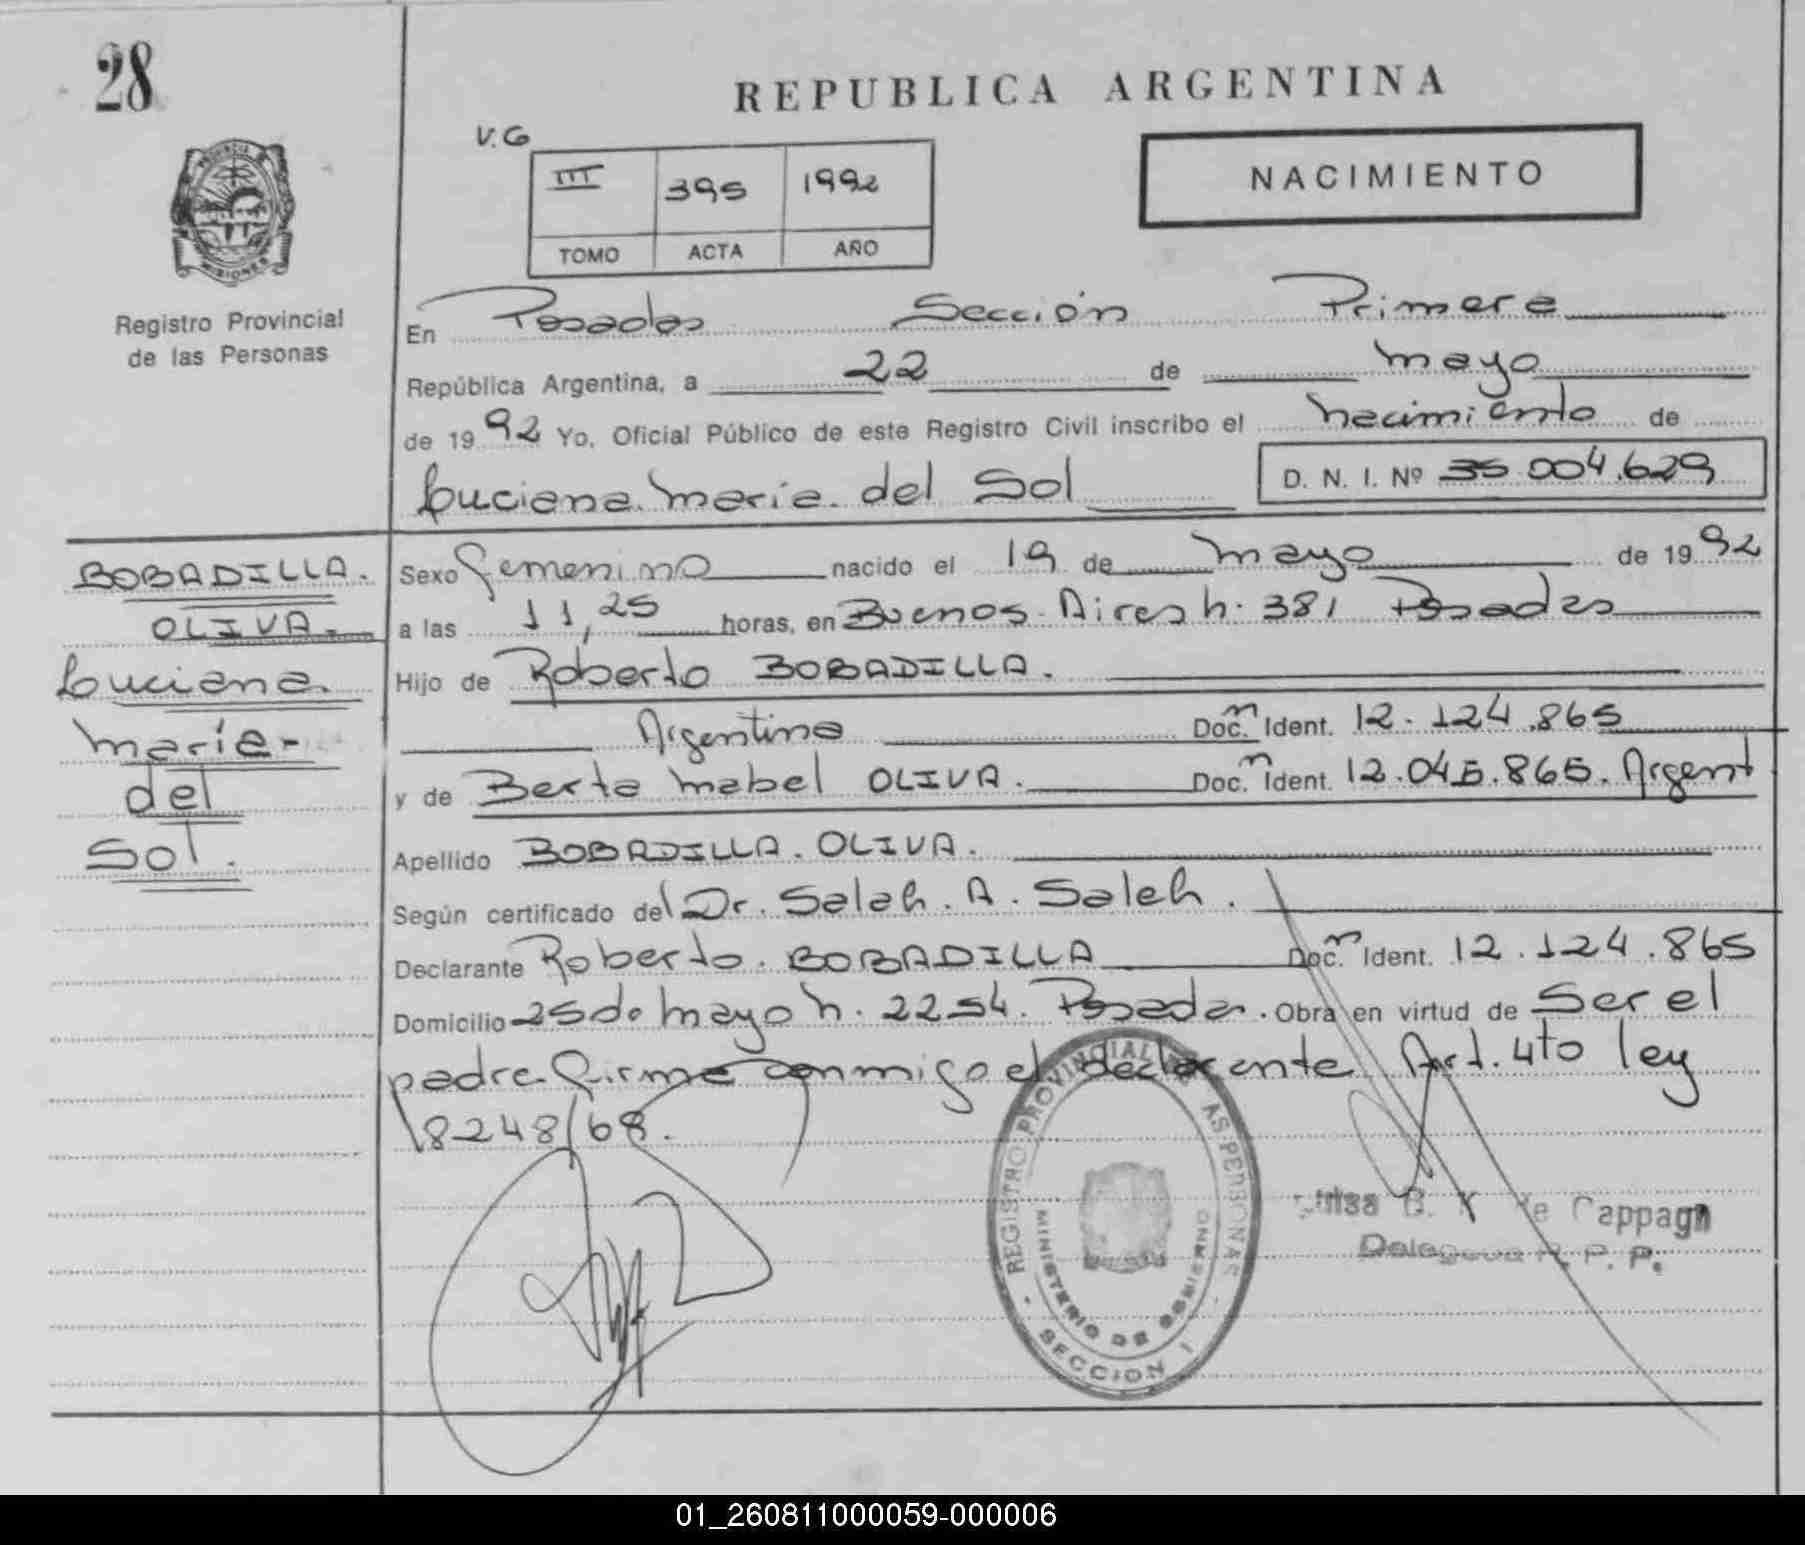 28
REPUBLICA ARGENTINA
V.G
III 395 1992
TOMO ACTA AÑO
NACIMIENTO
PROVINCIA DE MISIONES
Registro Provincial
de las Personas
En Posadas Sección Primera
República Argentina, a 22 de mayo
de 1992 Yo, Oficial Público de este Registro Civil inscribo el nacimiento de
Luciana María del Sol D. N. I. Nº 35.004.629
BOBADILLA.
OLIVA.
Luciana
María
del
Sol.
Sexo femenino nacido el 19 de mayo de 1992
a las 11,25 horas, en Buenos Aires n. 381 Posadas
Hijo de Roberto BOBADILLA.
Argentino Doc. Ident. 12.124.865
y de Berta Mabel OLIVA. Doc. Ident. 12.045.865. Argent
Apellido BOBADILLA. OLIVA.
Según certificado del Dr. Saleh. A. Saleh.
Declarante Roberto. BOBADILLA Doc. Ident. 12.124.865
Domicilio 25 de mayo n. 2254. Posadas. Obra en virtud de Ser el
padre firma conmigo el declarante Art. 4to ley
18248/68.
REGISTRO PROVINCIAL DE LAS PERSONAS
MINISTERIO DE GOBIERNO
SECCION I
Delegada R. P. P.
01_260811000059-000006